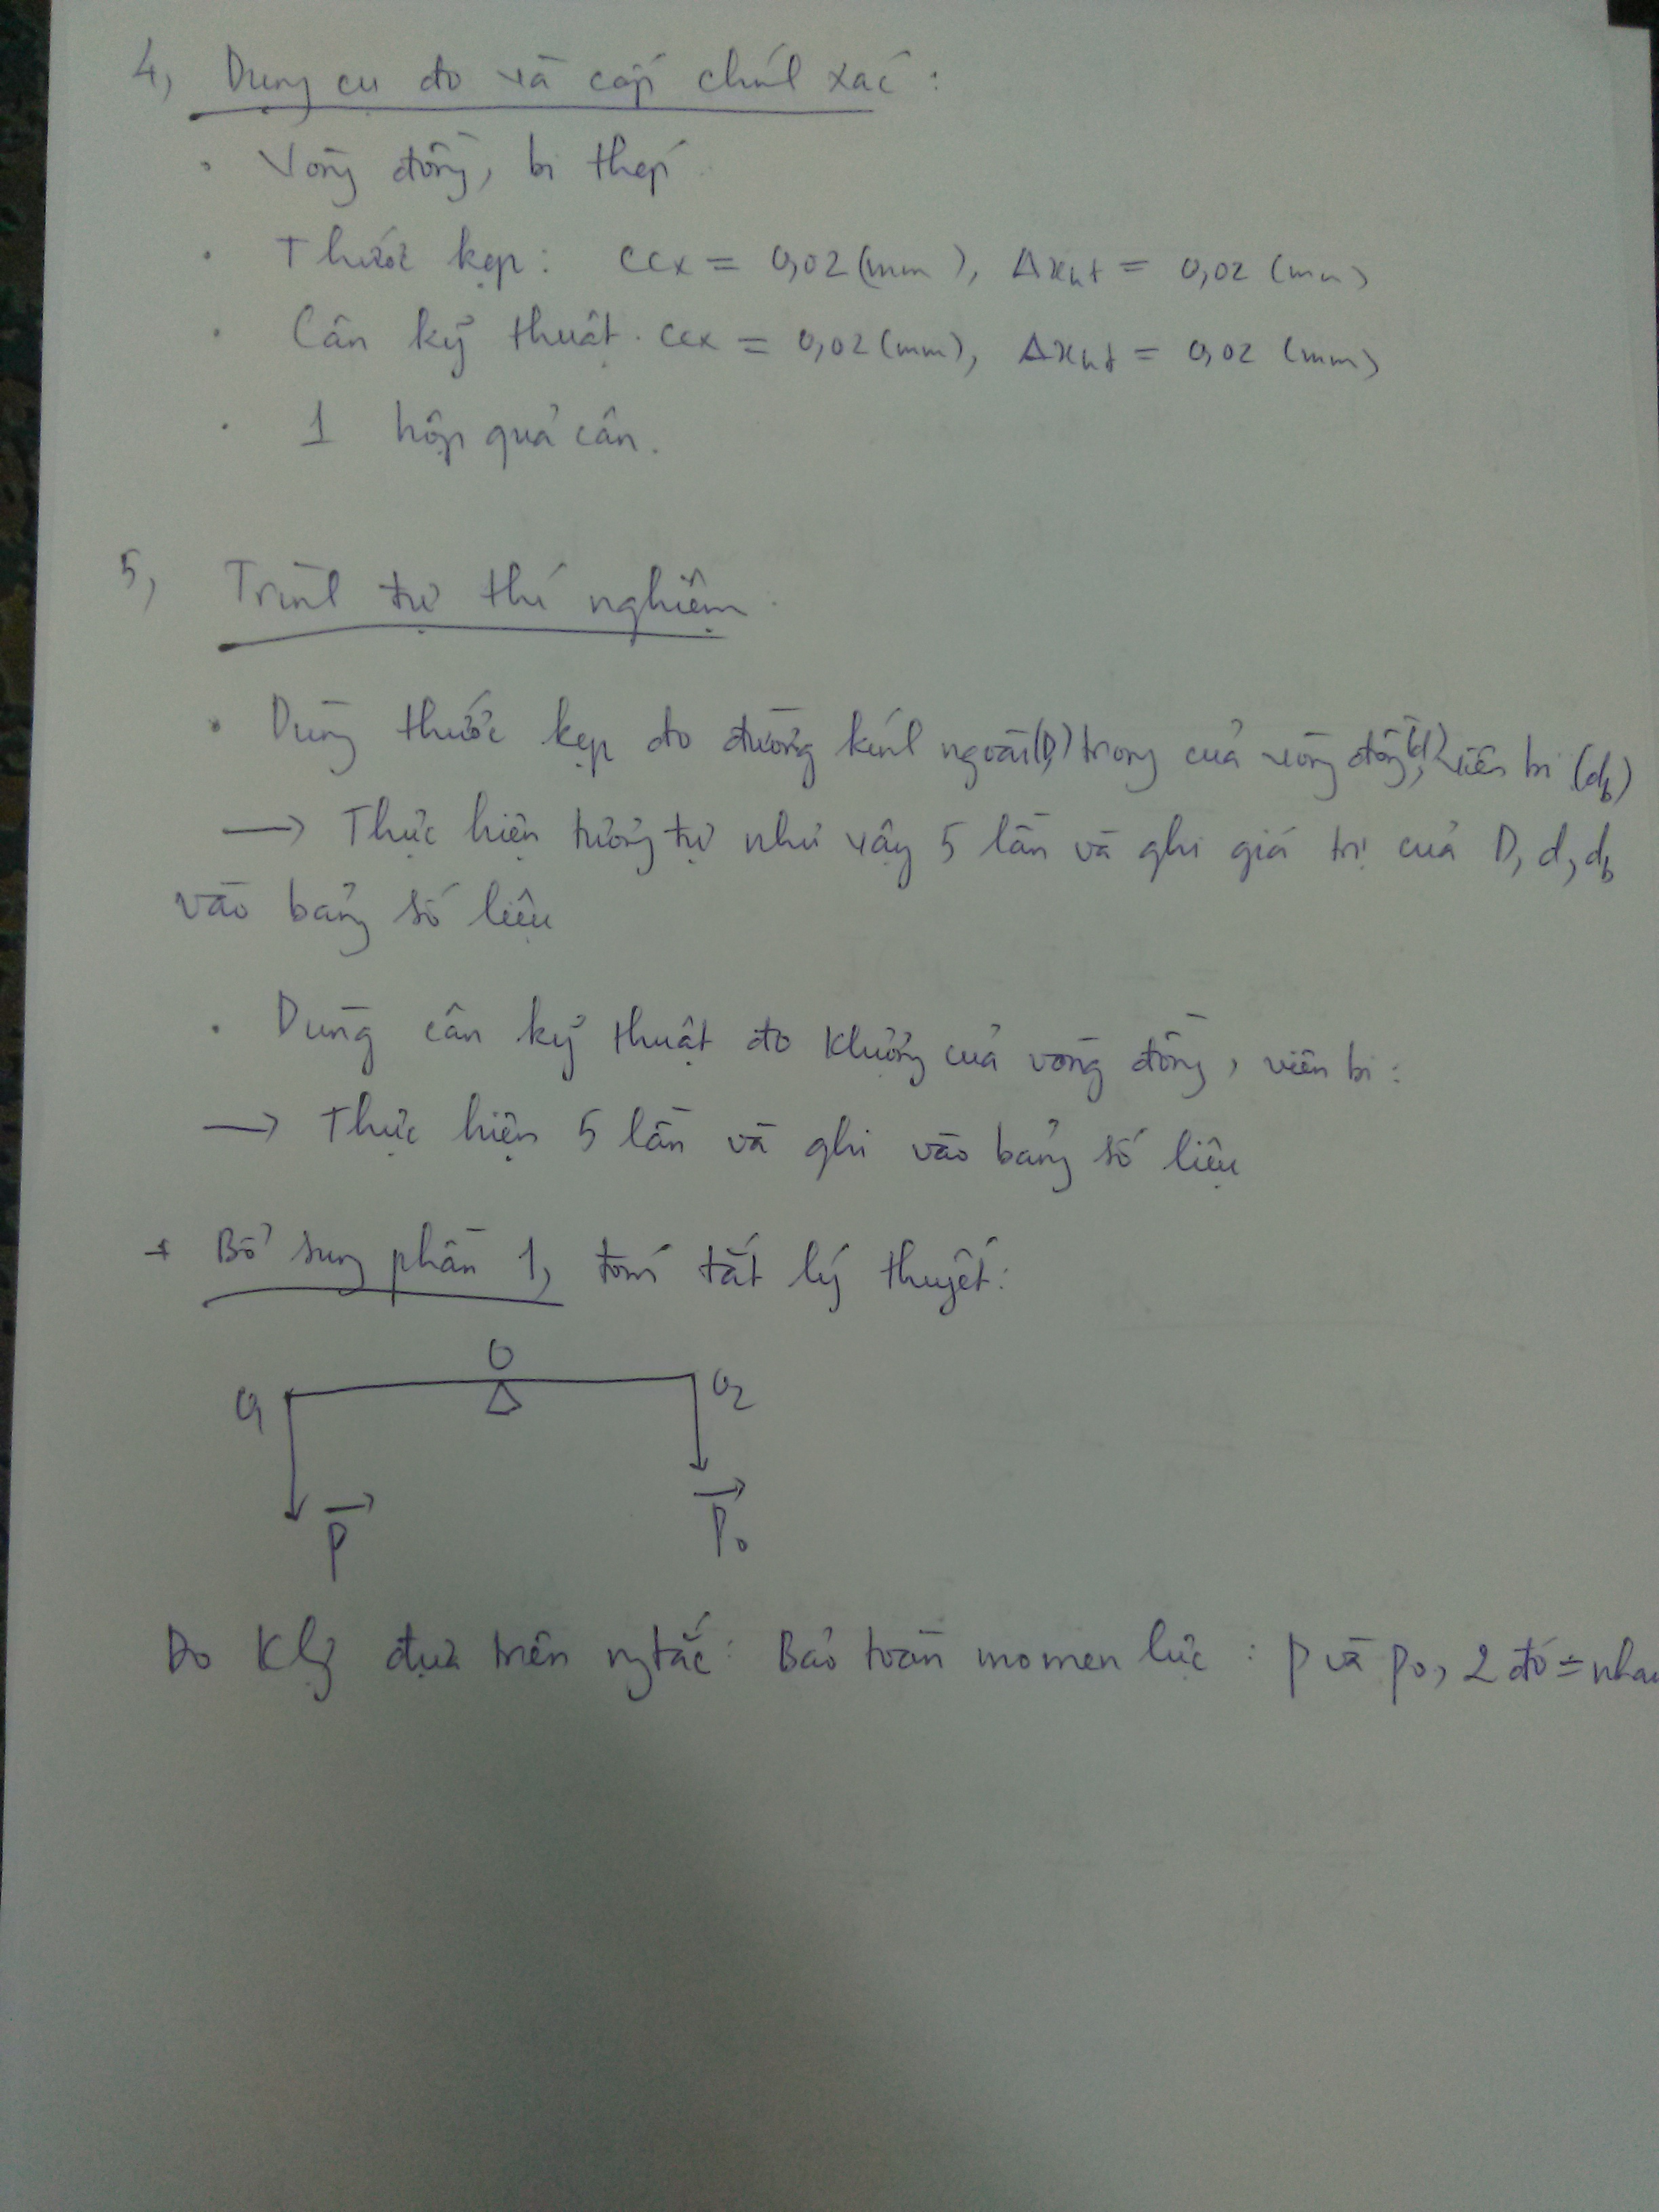 4, Dụng cụ đo và cấp chính xác :
• Vòng đồng, bi thép.
• Thước kẹp : ccx = 0,02 (mm), Δxht = 0,02 (mm)
• Cân kỹ thuật. ccx = 0,02 (mm), Δxht = 0,02 (mm)
• 1 hộp quả cân.
5, Trình tự thí nghiệm.
• Dùng thước kẹp đo đường kính ngoài (D,) trong của vòng đồng (d), viên bi (db)
→ Thực hiện tương tự như vậy 5 lần và ghi giá trị của D, d, db
vào bảng số liệu
• Dùng cân kỹ thuật đo Klượng của vòng đồng, viên bi :
→ Thực hiện 5 lần và ghi vào bảng số liệu
+ Bổ sung phần 1, tóm tắt lý thuyết :
O
O1 O2
P P0
Đo Klg dựa trên ngtắc : Bảo toàn momen lực : P và P0, 2 đó = nhau